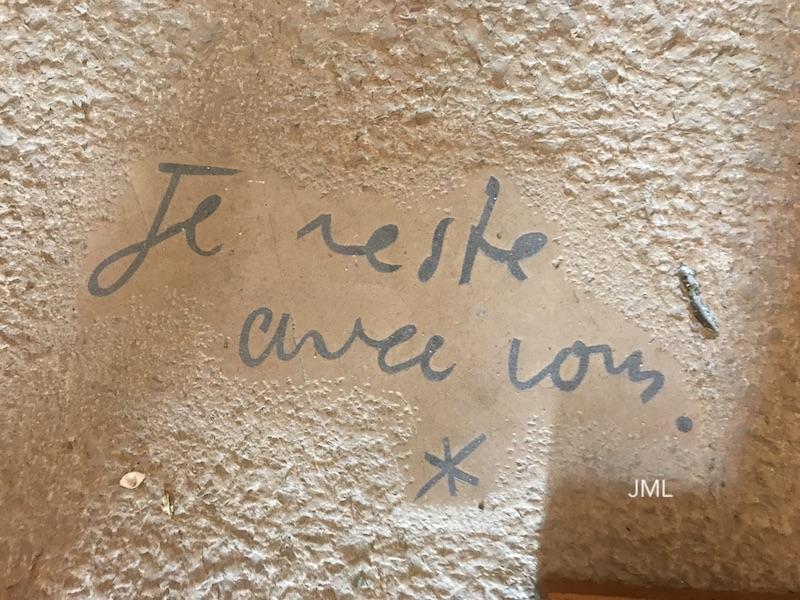 Je reste
avec vous.
*
JML